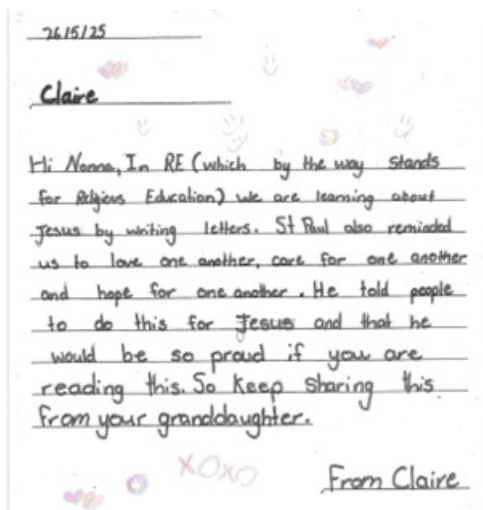 26/5/25
Claire
Hi Nonna, In RE (which by the way stands
for Religious Education) we are learning about
Jesus by writing letters. St Paul also reminded
us to love one another, care for one another
and hope for one another. He told people
to do this for Jesus and that he
would be so proud if you are
reading this. So keep sharing this
from your granddaughter.
XOXO
From Claire